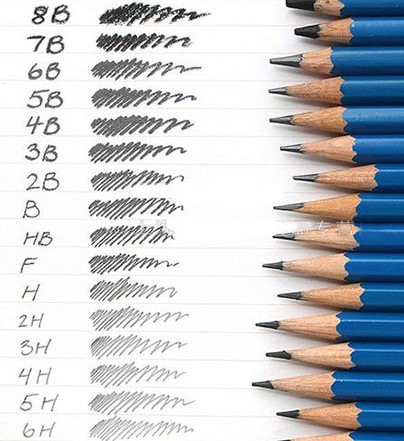 8B
7B
6B
5B
4B
3B
2B
B
HB
F
H
2H
3H
4H
5H
6H